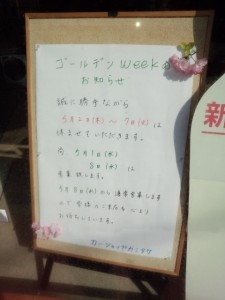 ゴールデンweekの
お知らせ
誠に勝手ながら
5月2日(木)〜7日(火)は
休ませていただきます。
尚 5月1日(水)
8日(水)は
営業致します。
5月8日(水)から通常営業します
ので皆様のご来店を心より
お待ちしています。
新